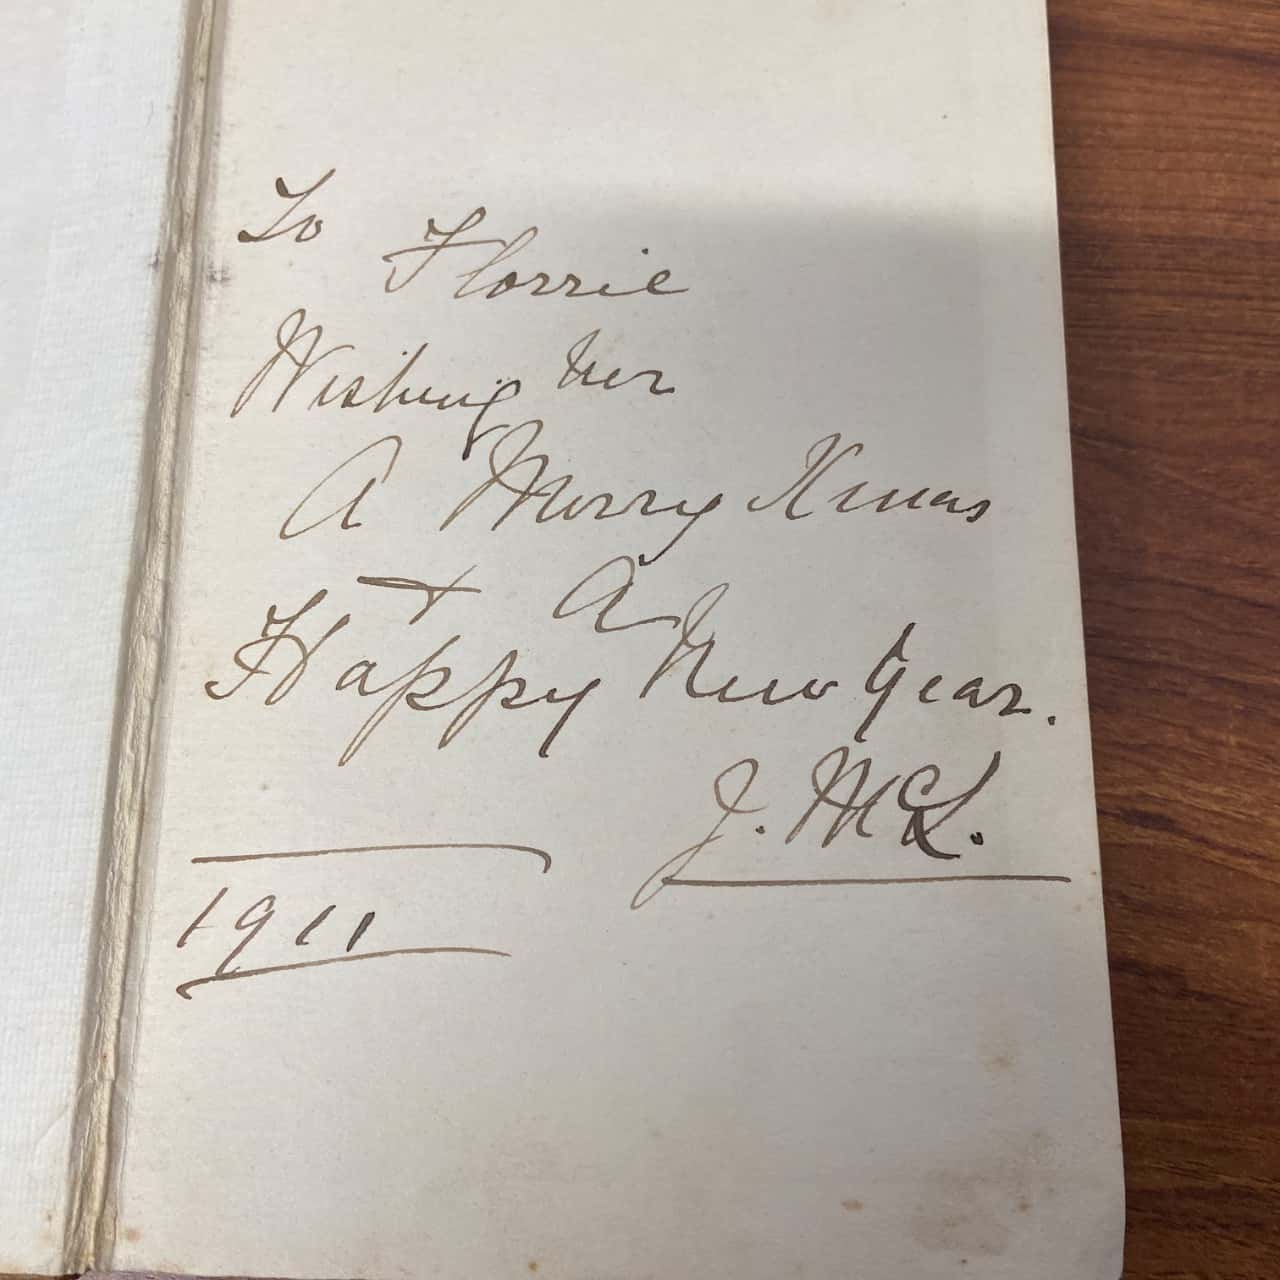 To Florrie
Wishing her
A Merry Xmas
+ A
Happy New Year.
J. McL.
1911